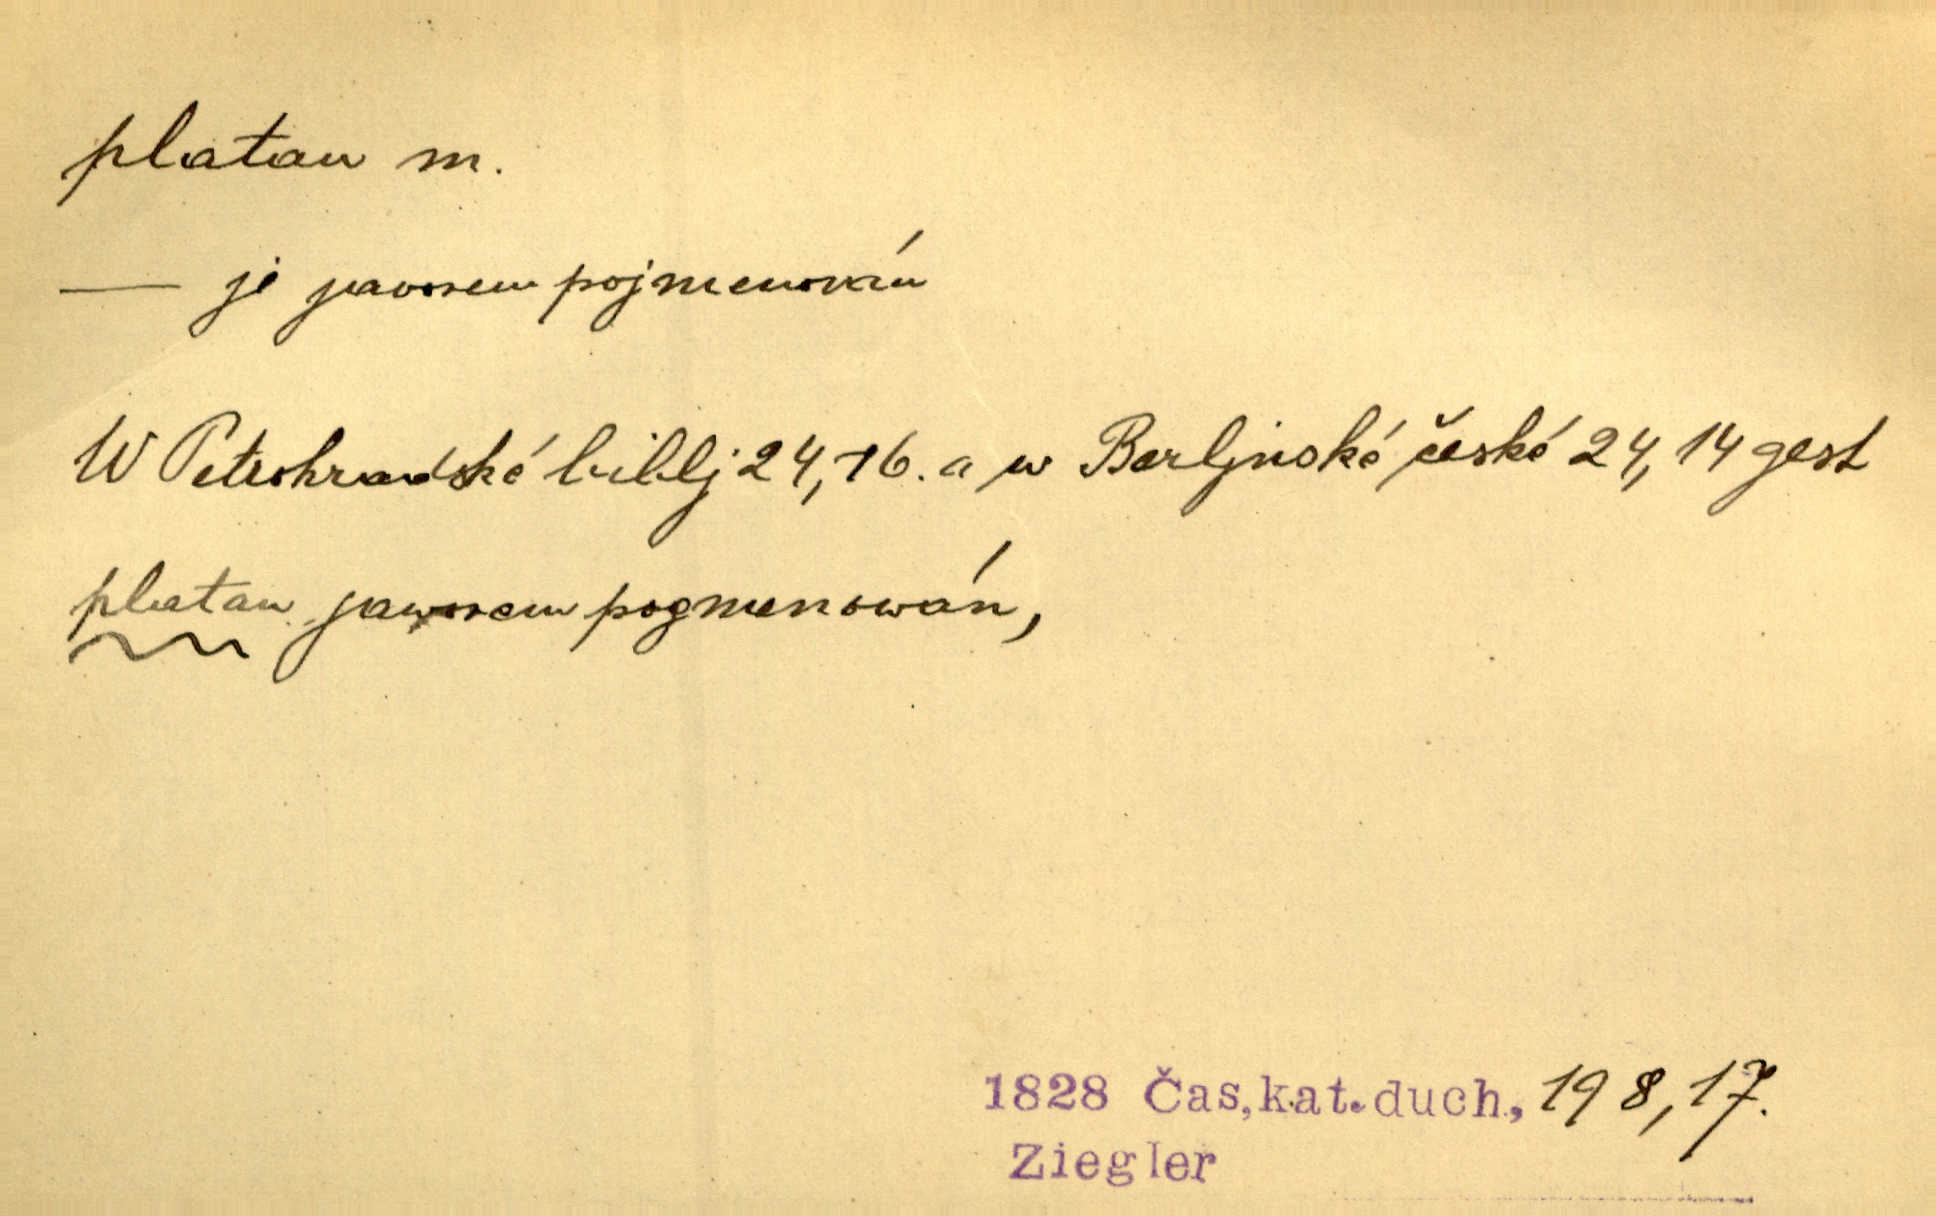 platan m.
— je javorem pojmenován
W Petrohradské biblj 24, 16. a w Berljnské české 24, 14 gest
platan jaworem pogmenowán,
1828 Čas, kat. duch., 198, 17.
Ziegler